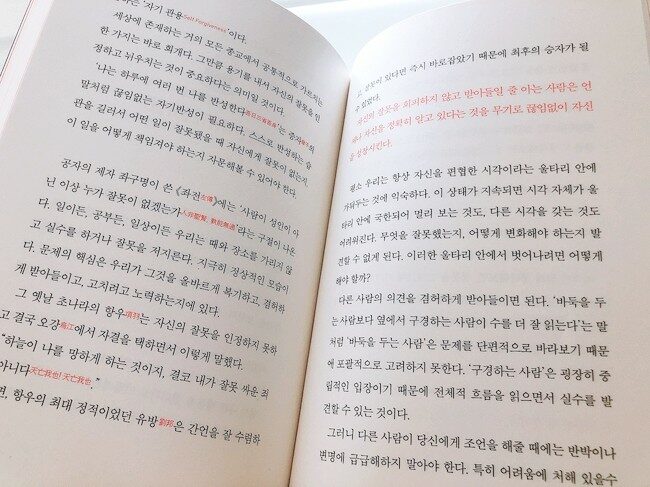 하는 '자기 관용Self Forgiveness'이다.
세상에 존재하는 거의 모든 종교에서 공통적으로 가르치는
한 가지는 바로 회개다. 그만큼 용기를 내서 자신의 잘못을 인
정하고 뉘우치는 것이 중요하다는 의미일 것이다.
'나는 하루에 여러 번 나를 반성한다'는 증자의
말처럼 끊임없는 자기반성이 필요하다. 스스로 반성하는 습
관을 길러서 어떤 일이 잘못됐을 때 자신에게 잘못이 없는지,
이 일을 어떻게 책임져야 하는지 자문해볼 수 있어야 한다.
공자의 제자 좌구명이 쓴 《좌전左傳》에는 '사람이 성인이 아
닌 이상 누가 잘못이 없겠는가人非聖賢, 孰能無過'라는 구절이 나온
다. 일이든, 공부든, 일상이든 우리는 때와 장소를 가리지 않
고 실수를 하거나 잘못을 저지른다. 지극히 정상적인 모습이
다. 문제의 핵심은 우리가 그것을 올바르게 복기하고, 겸허하
게 받아들이고, 고치려고 노력하는지에 있다.
그 옛날 초나라의 항우項羽는 자신의 잘못을 인정하지 못하
고 결국 오강烏江에서 자결을 택하면서 이렇게 말했다.
"하늘이 나를 망하게 하는 것이지, 결코 내가 잘못 싸운 죄
아니다天亡我也! 天亡我也."
면, 항우의 최대 정적이었던 유방劉邦은 간언을 잘 수렴하
고, 잘못이 있다면 즉시 바로잡았기 때문에 최후의 승자가 될
수 있었다.
자신의 잘못을 회피하지 않고 받아들일 줄 아는 사람은 언
제나 자신을 정확히 알고 있다는 것을 무기로 끊임없이 자신
을 성장시킨다.
평소 우리는 항상 자신을 편협한 시각이라는 울타리 안에
가둬두는 것에 익숙하다. 이 상태가 지속되면 시각 자체가 울
타리 안에 국한되어 멀리 보는 것도, 다른 시각을 갖는 것도
어려워진다. 무엇을 잘못했는지, 어떻게 변화해야 하는지 발
견할 수 없게 된다. 이러한 울타리 안에서 벗어나려면 어떻게
해야 할까?
다른 사람의 의견을 겸허하게 받아들이면 된다. '바둑을 두
는 사람보다 옆에서 구경하는 사람이 수를 더 잘 읽는다'는 말
처럼 '바둑을 두는 사람'은 문제를 단편적으로 바라보기 때문
에 포괄적으로 고려하지 못한다. '구경하는 사람'은 굉장히 중
립적인 입장이기 때문에 전체적 흐름을 읽으면서 실수를 발
견할 수 있는 것이다.
그러니 다른 사람이 당신에게 조언을 해줄 때에는 반박이나
변명에 급급해하지 말아야 한다. 특히 어려움에 처해 있을수